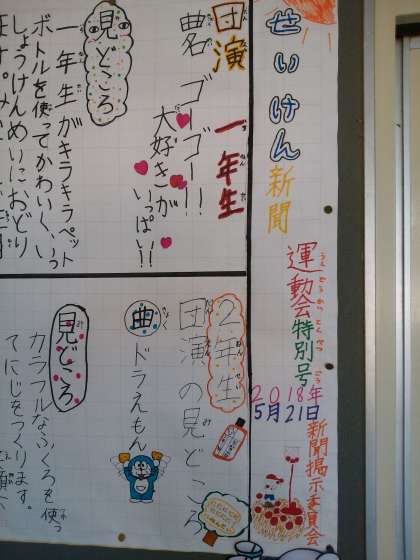 せいけん新聞
運動会特別号
2018年
5月21日
新聞掲示委員会
団演 一年生
曲名 ゴーゴー!!
大好きが
いっぱい!!
見どころ
一年生がキラキラペット
ボトルを使ってかわいく、いっ
しょうけんめいにおどり
2年生
団演の見どころ
曲 ドラえもん
見どころ
カラフルなふくろを使っ
てにじをつくります。